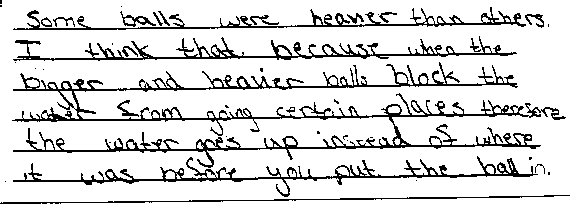 Some balls were heavier than others.
I think that. because when the
bigger and heavier balls block the
water from going certein places therefore
the water goes up instead of where
it was before you put the ball in.